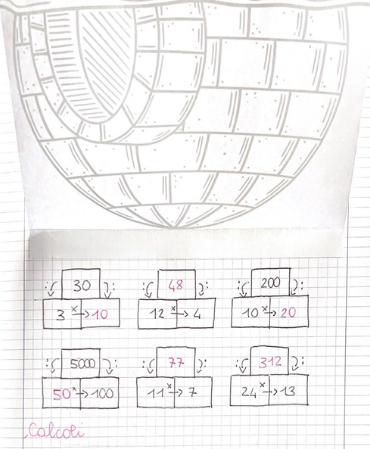 30 48 200
: : : : : :
3 x→ 10 12 x→ 4 10 x→ 20
5000 77 312
: : : : : :
50 x→ 100 11 x→ 7 24 x→ 13
Calcoli